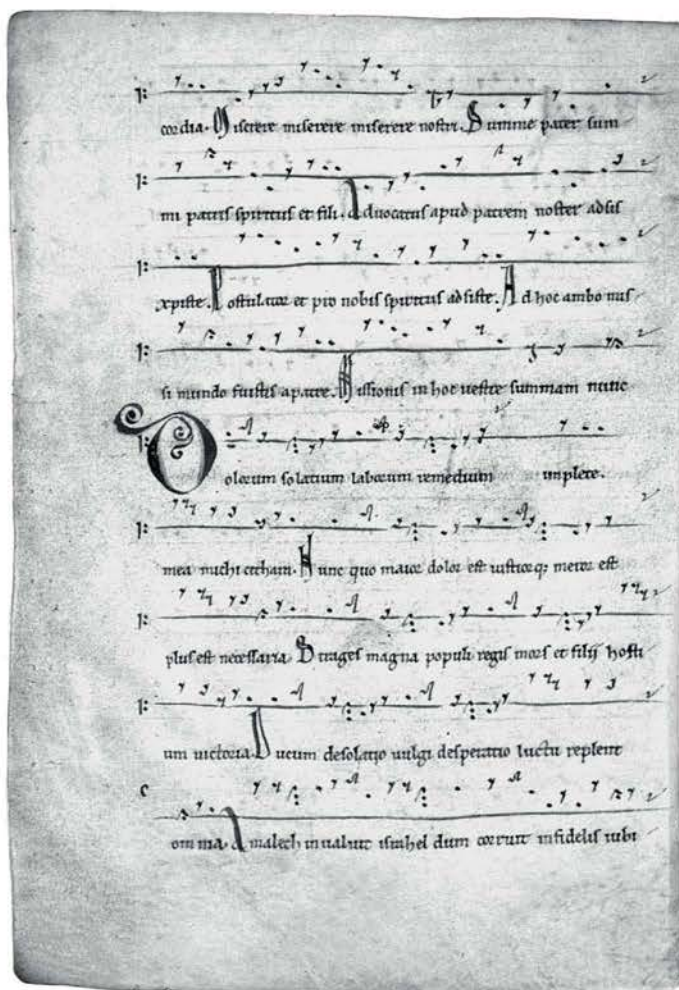 cordia. Miserere miserere miserere nostri. Summe pater sum
mi patris spiritus et fili. Advocatus apud patrem noster adsis
xpiste. Postulator et pro nobis spiritus adsiste. Ad hoc ambo mis
si mundo fuistis a patre. Missionis in hoc vestre summam nunc
Dolorum solatium laborum remedium implete.
mea michi cithara. Nunc quo maior dolor est iustiorq; meror est
plus est necessaria. Strages magna populi regis mors et filij hosti
um victoria. Ducum desolatio vulgi desperatio luctu replent
omnia. Amalech invaluit israhel dum corruit infidelis iubi